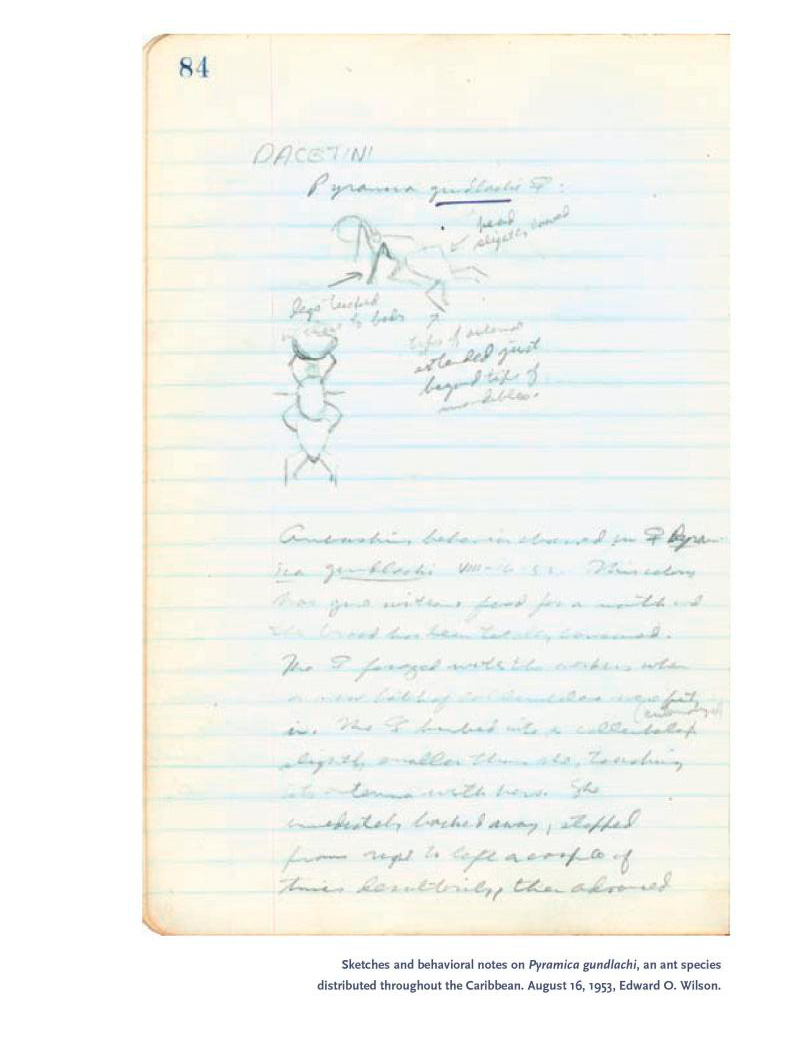 84
DACETINI
Pyramica gundlachi ♀:
head
slightly lowered
legs tucked
in close to body
tips of antennae
extended just
beyond tips of
mandibles.
behavior observed in ♀ Pyram-
ica gundlachi VIII-16-53. This colony
has gone without food for a month and
the brood has been totally consumed.
The ♀ foraged with the workers when
a new batch of collembolas were put
in. The ♀ bumped into a collembolan
(entomobryid)
slightly smaller than she, touching
its antenna with hers. She
immediately backed away, stepped
from right to left a couple of
times desultorily, then advanced
Sketches and behavioral notes on Pyramica gundlachi, an ant species
distributed throughout the Caribbean. August 16, 1953, Edward O. Wilson.